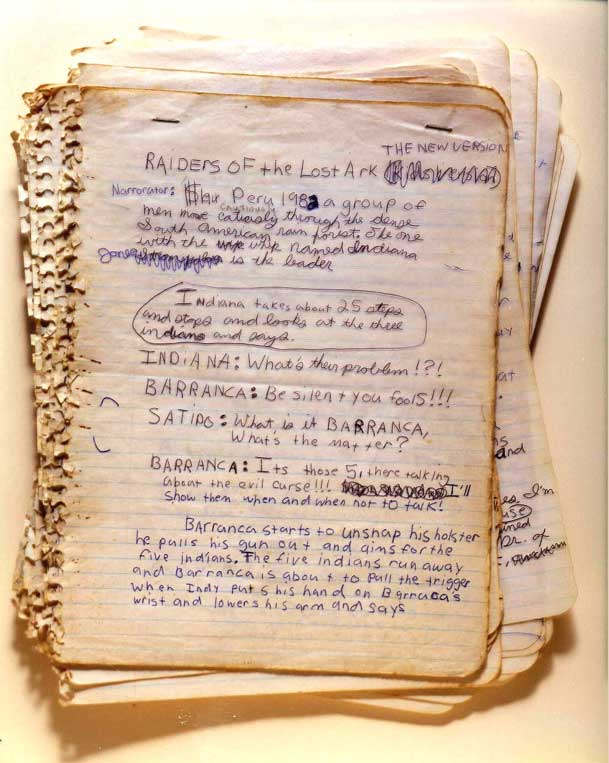 THE NEW VERSION
RAIDERS OF the Lost Ark
Narrorator: Peru 1982 a group of
men move catiously through the dense
South American rain forist. The one
with the whip named Indiana
Jones is the leader
Indiana takes about 25 steps
and stops and looks at the three
indians and says.
INDIANA: What's their problem!?!
BARRANCA: Be silent you fools!!!
SATIPO: What, is it BARRANCA,
Whats the matter?
BARRANCA: Its those 5, there talking
about the evil curse!!! I'll
show them when and when not to talk!
Barranca starts to unsnap his holster
he pulls his gun out and aims for the
five indians. The five indians run away
and Barranca is about to pull the trigger
when Indy puts his hand on Barraca's
wrist and lowers his arm and says
at
and
I'm
use
Dr. of